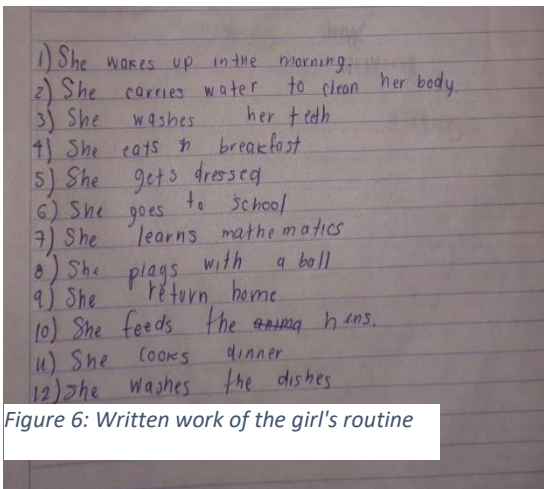 1) She wakes up in the morning.
2) She carries water to clean her body.
3) She washes her teeth
4) She eats h breakfast
5) She gets dressed
6) She goes to school
7) She learns mathematics
8) She plays with a ball
9) She return home
10) She feeds the anima hens.
11) She cooks dinner
12) She washes the dishes
Figure 6: Written work of the girl's routine